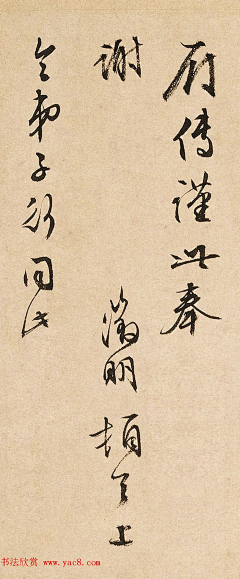 傳謹此奉
謝　徵明頓首上
令弟子行同此
书法欣赏 www.yac8.com